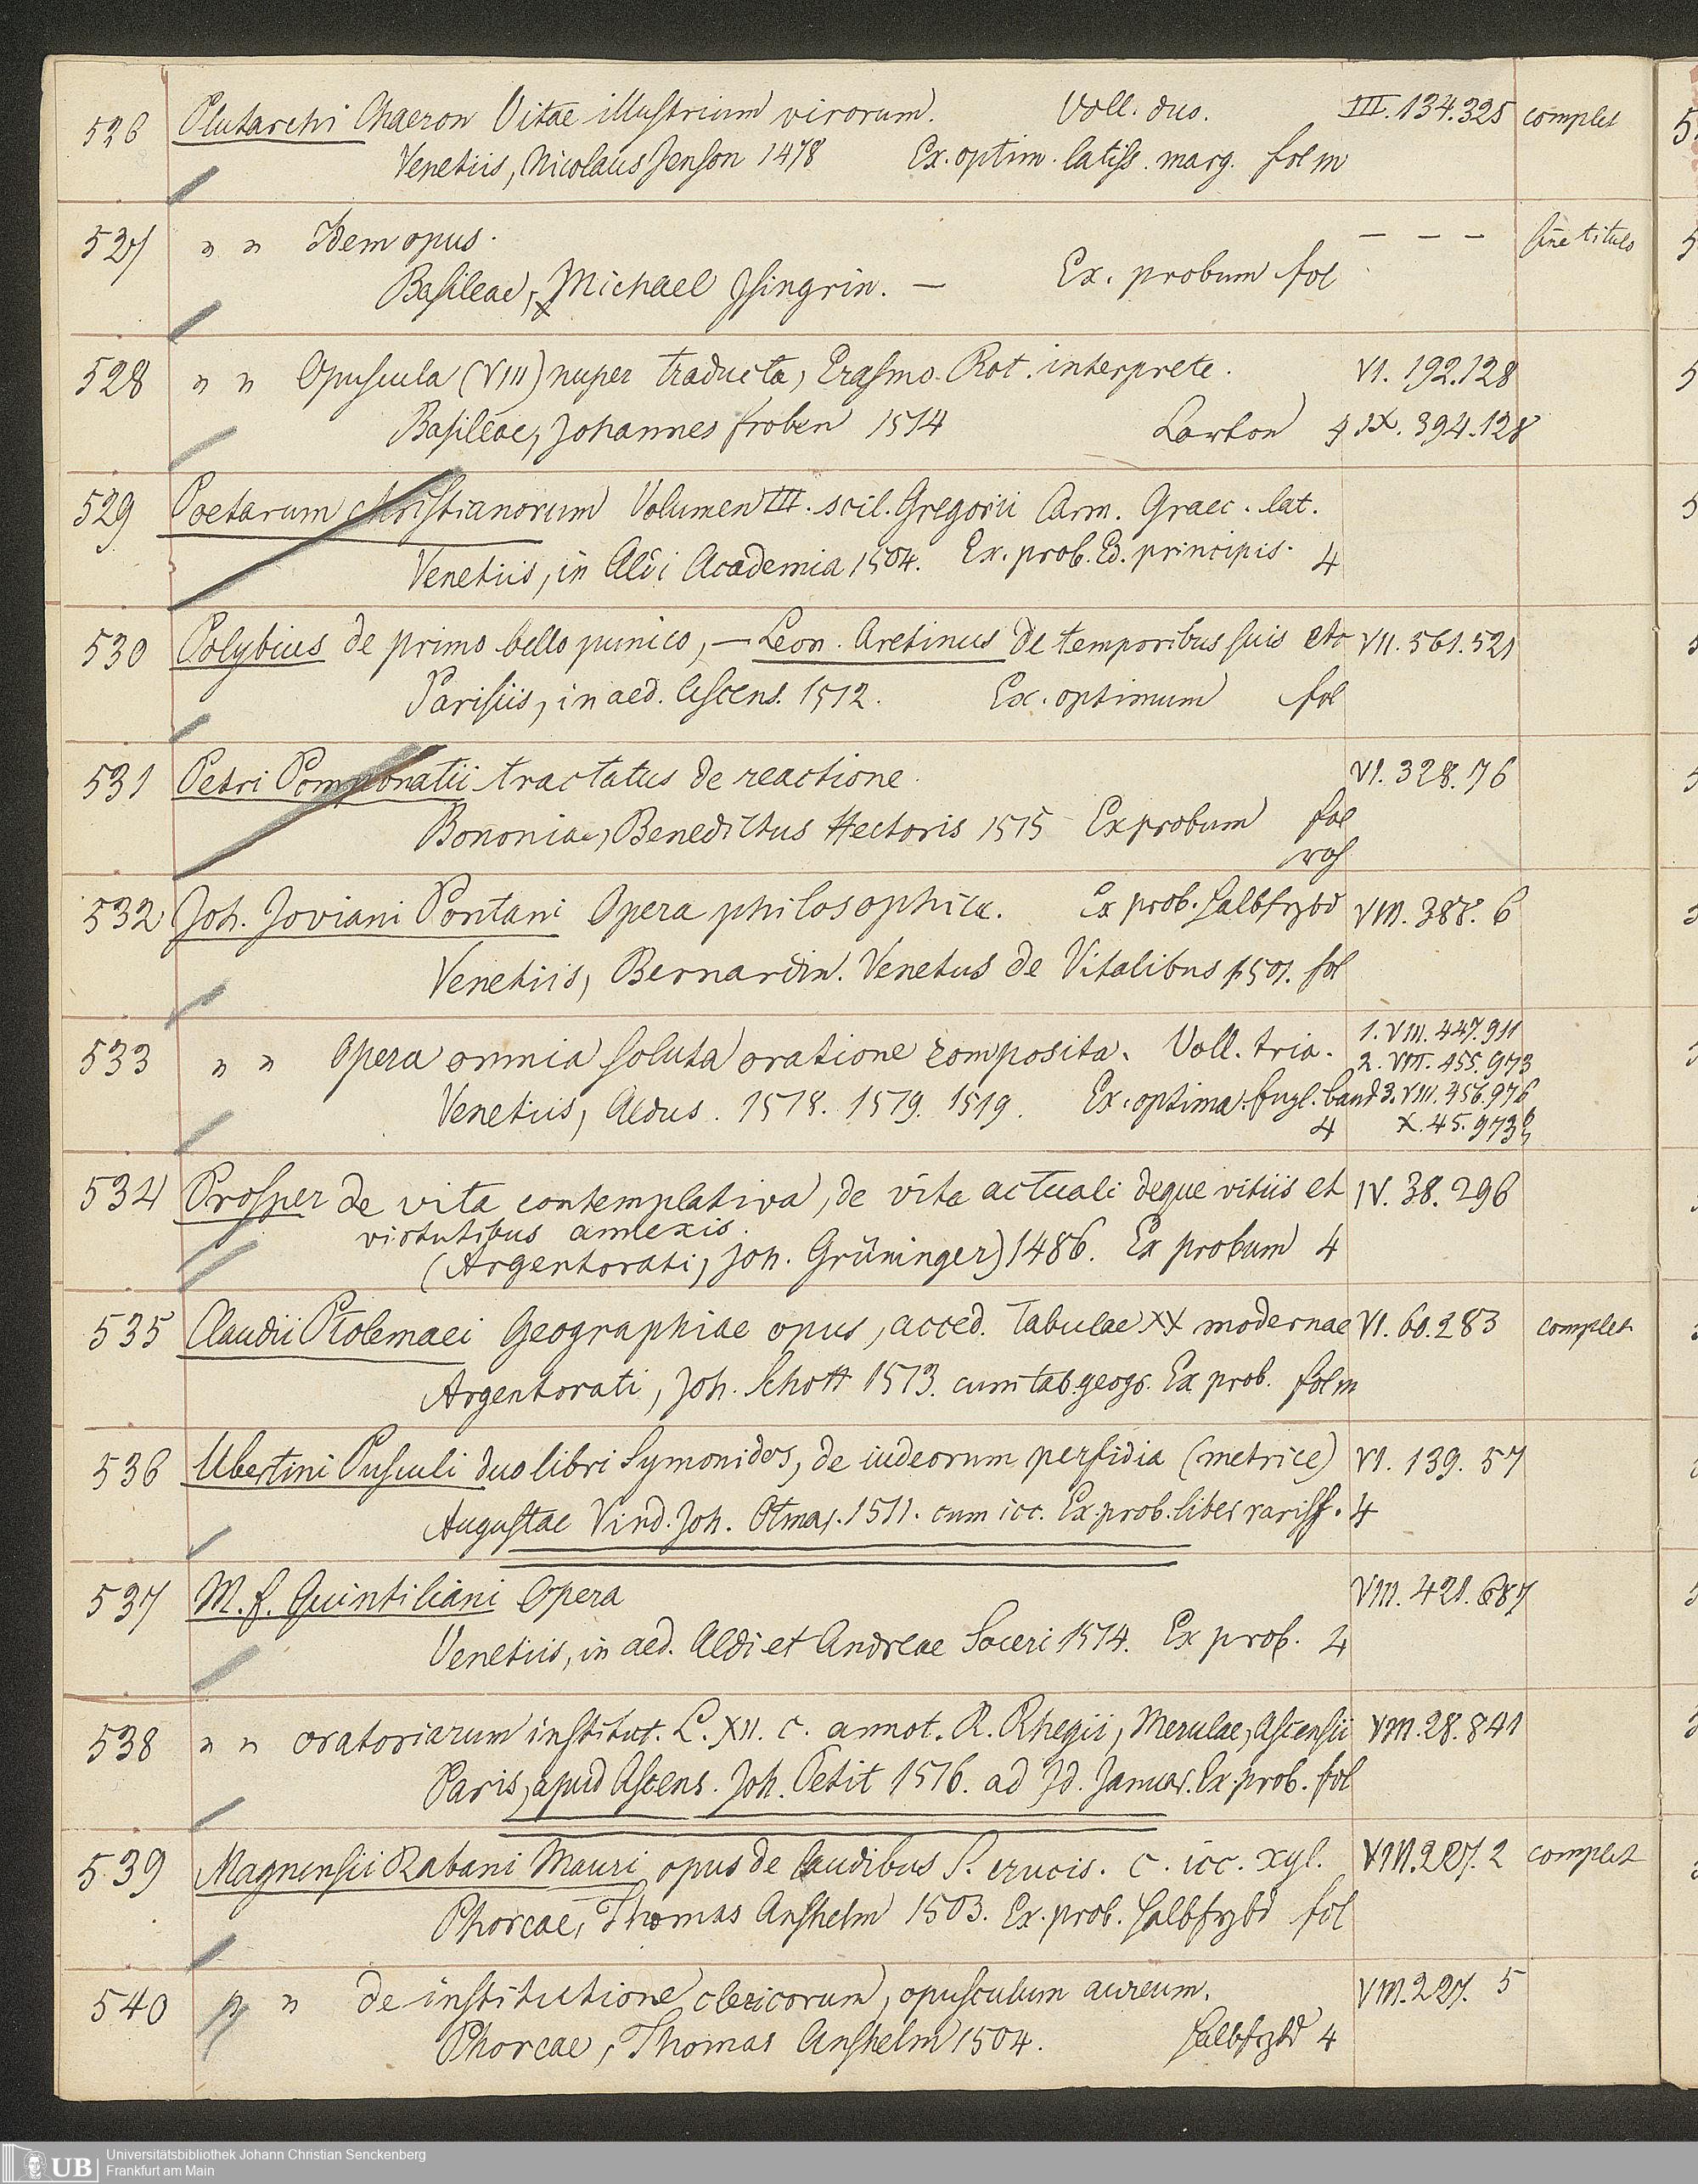 526 Plutarchi Chaeron Vitae illustrium virorum. Voll. duo. III. 134.325 complet
Venetiis, Nicolaus Jenson 1478 Ex. optim. latiss. marg. fol m
527 " " Idem opus. — — — sine titulo
Basileae, Michael Isingrin. — Ex. probum fol
528 " " Opuscula (VIII) nuper traducta, Erasmo Rot. interprete. VI. 192.128
Basileae, Johannes Froben 1514 Carton 4 IX. 394.128
529 Poetarum christianorum Volumen III. scil. Gregorii Carm. Graec. lat.
Venetiis, in Aldi Academia 1504. Ex. prob. Ed. principis. 4
530 Polybius de primo bello punico, — Leon. Aretinus de temporibus suis etc VII. 561.521
Parisiis, in aed. Ascens. 1512. Ex. optimum fol
531 Petri Pomponatii tractatus de reactione. VI. 328.76
Bononiae, Benedictus Hectoris 1515 Ex probum fol
roh
532 Joh. Joviani Pontani Opera philosophica. Ex prob. Halbfrzbd VIII. 388. 6
Venetiis, Bernardin. Venetus de Vitalibus 1501. fol
533 " " Opera omnia soluta oratione composita. Voll. tria. 1. VIII. 447.911
2. VIII. 455.973
Venetiis, Aldus. 1518. 1519. 1519. Ex. optima. Engl. band 3. VIII. 456.976
4 X. 45. 973b
534 Prosper de vita contemplativa, de vita actuali deque vitiis et IV. 38. 296
virtutibus annexis.
(Argentorati, Joh. Grüninger) 1486. Ex probum 4
535 Claudii Ptolemaei Geographiae opus, acced. Tabulae XX modernae VI. 60.283 complet
Argentorati, Joh. Schott 1513. cum tab. geogr. Ex prob. fol m
536 Ubertini Pusculi duo libri Symonidos, de iudeorum perfidia (metrice) VI. 139. 57
Augustae Vind. Joh. Otmar. 1511. cum icc. Ex. prob. liber rariss. 4
537 M. f. Quintiliani Opera VIII. 421. 687
Venetiis, in aed. Aldi et Andreae Soceri 1514. Ex prob. 4
538 " " oratoriarum institut. L. XII. c. annot. R. Rhegii, Merulae, Ascensii VIII. 28. 841
Paris, apud Ascens. Joh. Petit 1516. ad Id. Januar. Ex. prob. fol
539 Magnensii Rabani Mauri opus de laudibus S. crucis. c. icc. xyl. VIII. 227. 2 complet
Phorcae, Thomas Anshelm 1503. Ex. prob. Halbfrzbd fol
540 " " de institutione clericorum, opusculum aureum. VIII. 227. 5
Phorcae, Thomas Anshelm 1504. Halbfrzbd 4
UB Universitätsbibliothek Johann Christian Senckenberg
Frankfurt am Main